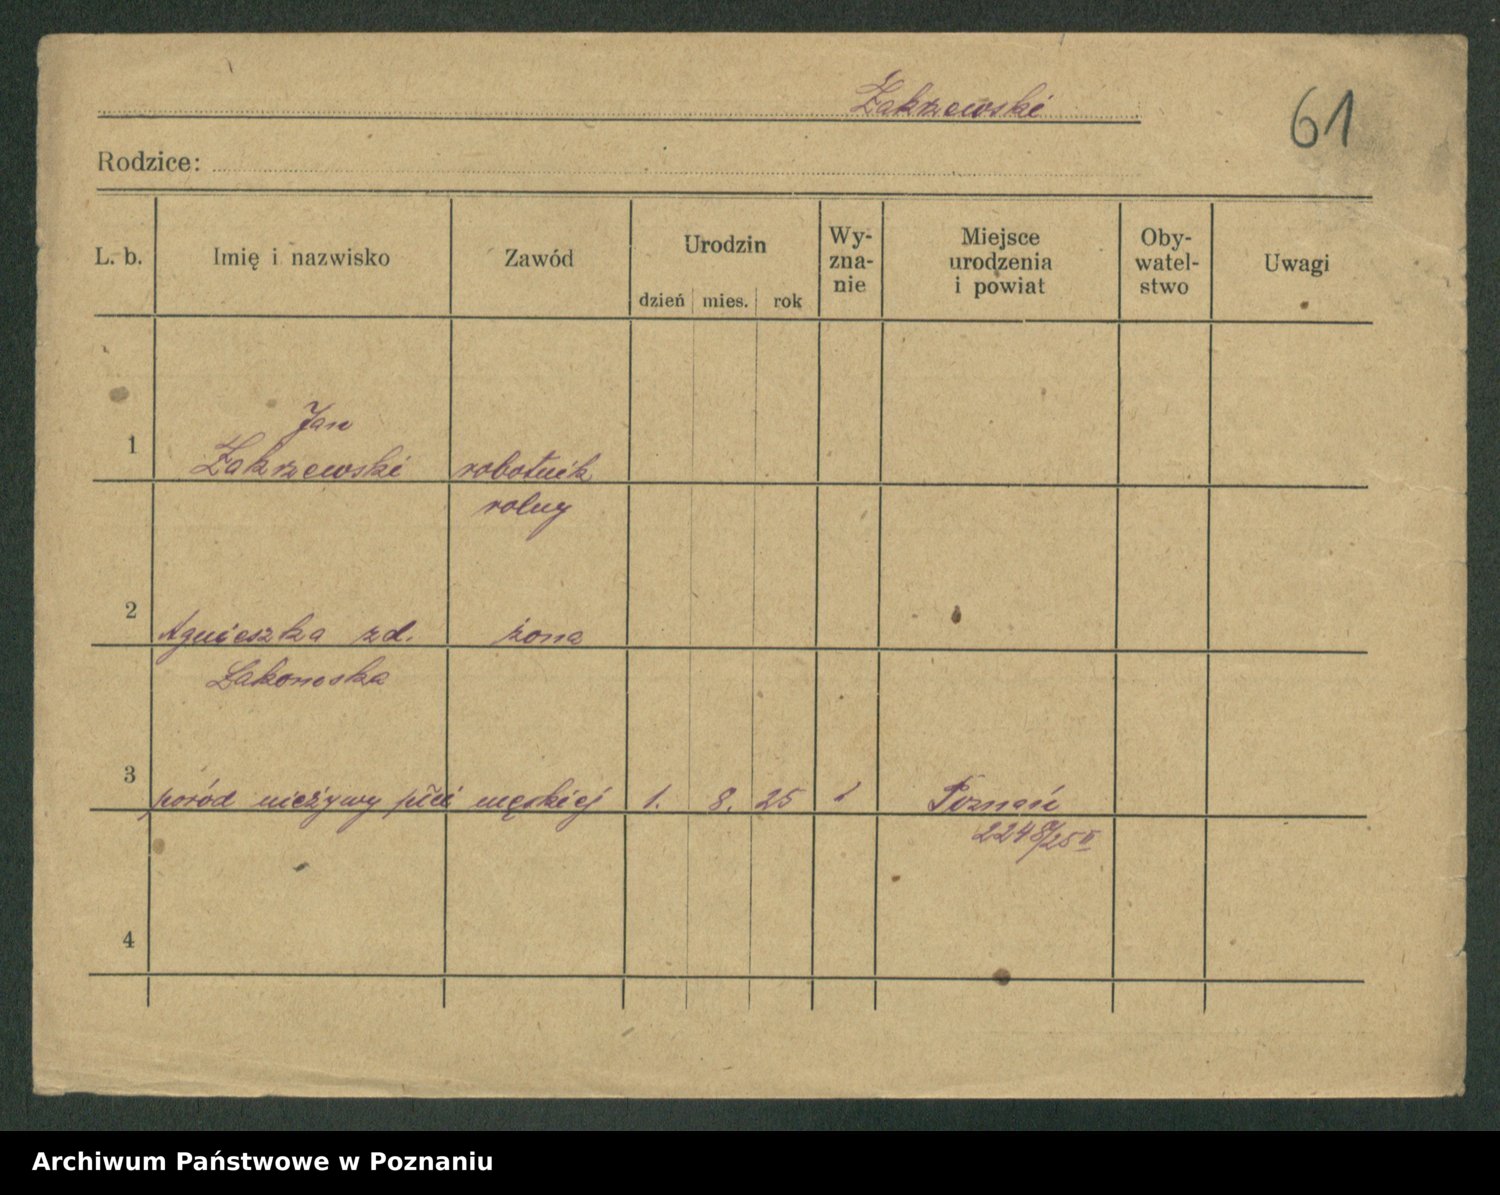 Zakrzewski
61
Rodzice:
L. b. Imię i nazwisko Zawód Urodzin dzień mies. rok Wy-zna-nie Miejsce urodzenia i powiat Oby-watel-stwo Uwagi
Jan
1 Zakrzewski robotnik
rolny
2 Agnieszka zd. żona
3 poród nieżywy płci męskiej 1. 8. 25 Poznań
2248/25 II
4
Archiwum Państwowe w Poznaniu